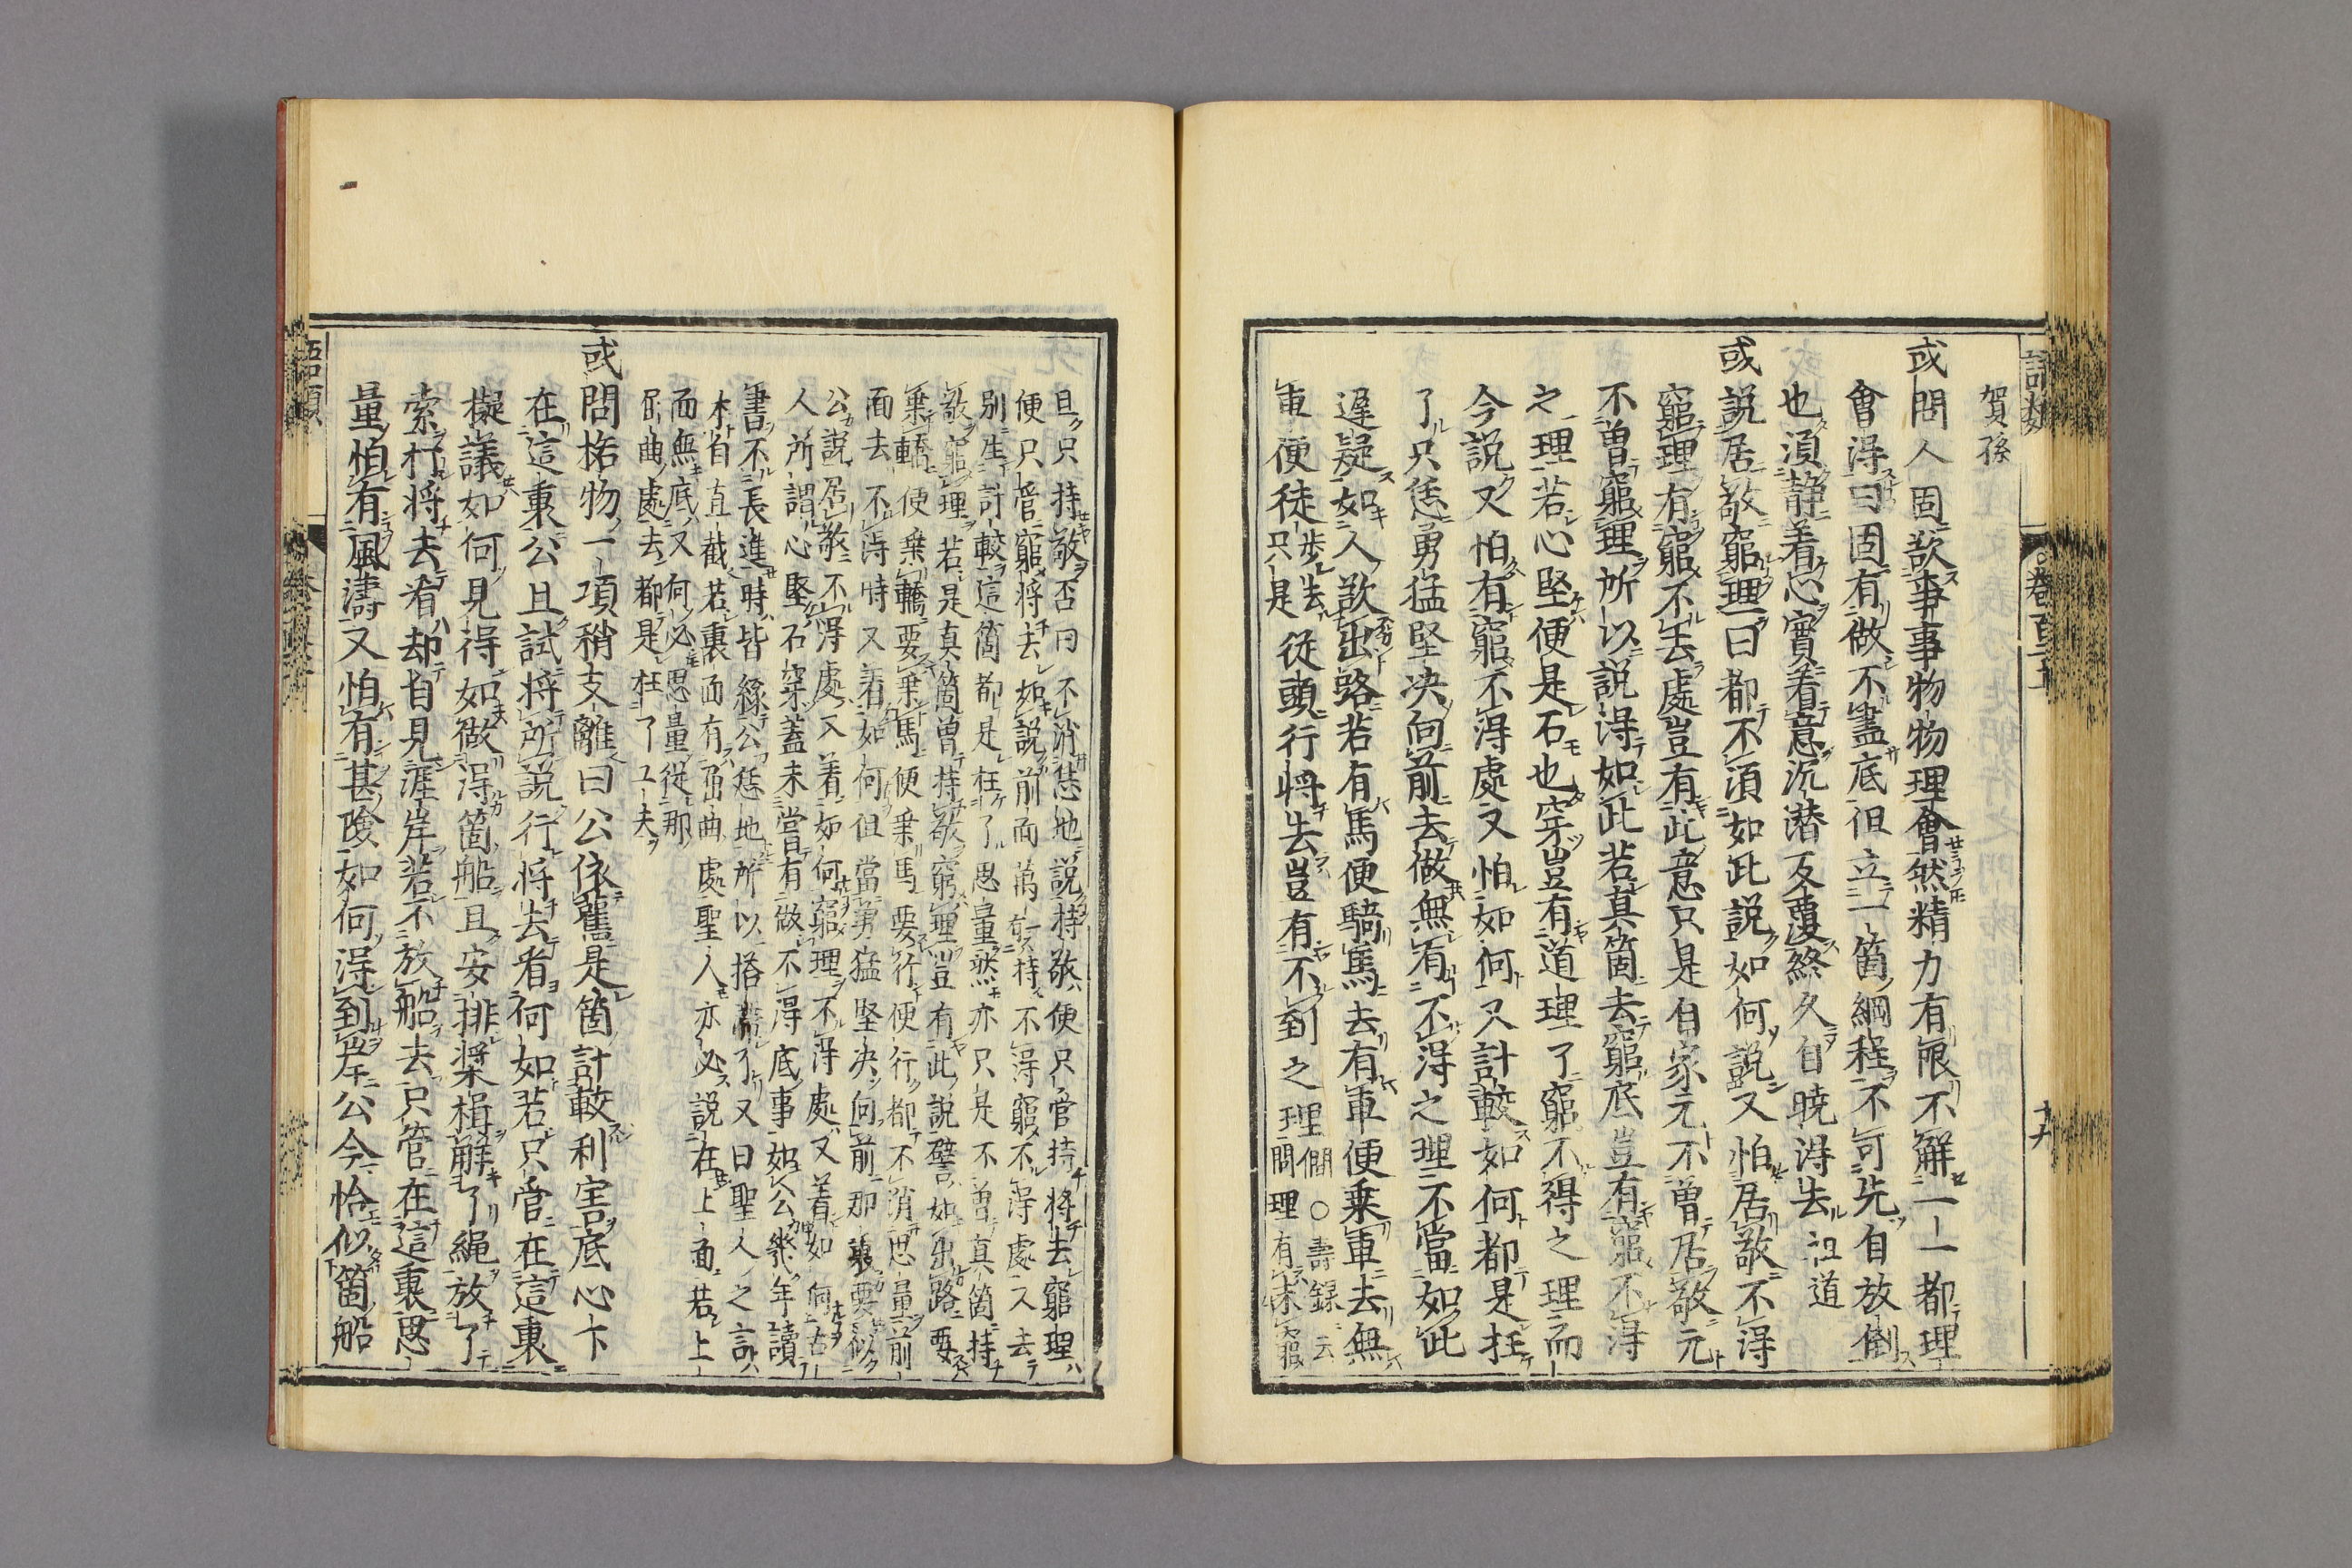 語類
卷百二十
十九
賀孫
或問人固欲事事物物理會然精力有限不解一一都理
會得曰固有做不盡底但立一箇綱程不可先自放倒
也須静着心實着意沉潜反覆終久自曉得去 祖道
或說居敬窮理曰都不須如此說如何說又怕居敬不得
窮理有窮不去處豈有此意只是自家元不曾居敬元
不曾窮理所以說得如此若真箇去窮底豈有窮不得
之理若心堅便是石也穿豈有道理了窮不得之理而
今說又怕有窮不得處又怕如何又計較如何都是枉
了只恁勇猛堅决向前去做無有不得之理不當如此
遲疑如人欲出路若有馬便騎馬去有車便乗車去無
車便徒步去只是從頭行將去豈有不到之理 僩○壽録云
問理有未窮
且只持敬否曰不消恁地說持敬便只管持將去窮理
便只管窮將去如說前面萬一持不得窮不得處又去
別生計較這箇都是枉了思量然亦只是不曾真箇持
敬窮理若是真箇曾持敬窮理豈有此說譬如出路要
乗轎便乗轎要乗馬便乗馬要行便行都不消思量前
面去不得時又着如何但當勇猛堅决向前那裏要似
公說居敬不得處又着如何窮理不得處又着如何古
人所謂心堅石穿蓋未嘗有做不得底事如公幾年讀
書不長進時皆緣公恁地所以搭滯了又曰聖人之言
本自直截若裏面有屈曲處聖人亦必說在上面若上
面無底又何必思量從那
屈曲處去都是枉了工夫
或問格物一項稍支離曰公依舊是箇計較利害底心下
在這裏公且試將所說行將去看何如若只管在這裏
擬議如何見得如做得箇船且安排槳楫解了繩放了
索打將去看却自見涯岸若不放船去只管在這裏思
量怕有風濤又怕有甚險如何得到岸公今恰似箇船
語類